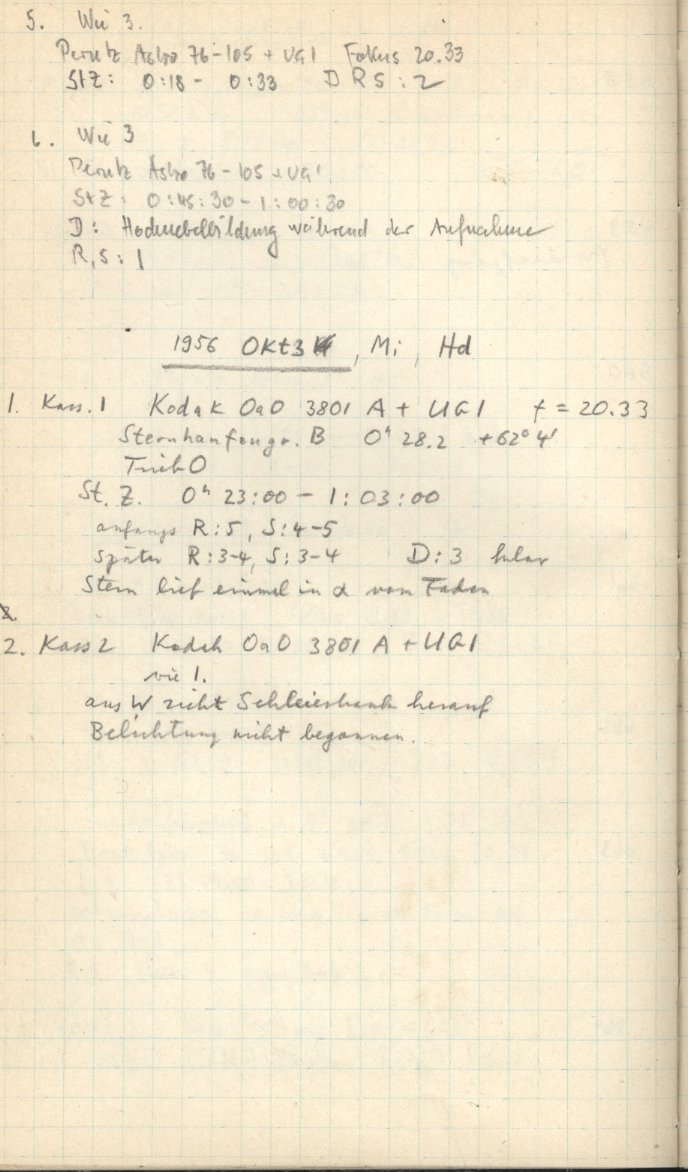 5. Wie 3.
Perutz Astro 76-105 + UG1 Fokus 20.33
StZ: 0:18 - 0:33 D R S : 2
6. Wie 3
Perutz Astro 76-105 + UG1
StZ: 0:45:30 - 1:00:30
D: Hochnebelbildung während der Aufnahme
R, S: 1
1956 Okt 3, Mi, Hd
1. Kass. 1 Kodak OaO 3801 A + UG1 f = 20.33
Sternhaufengr. B 0h 28.2 +62° 4'
Trieb O
St. Z. 0h 23:00 - 1:03:00
anfangs R:5, S:4-5
später R:3-4, S:3-4 D:3 klar
Stern lief einmal in α vom Faden
2. Kass 2 Kodak OaO 3801 A + UG1
wie 1.
aus W zieht Schleierbank herauf
Belichtung nicht begonnen.